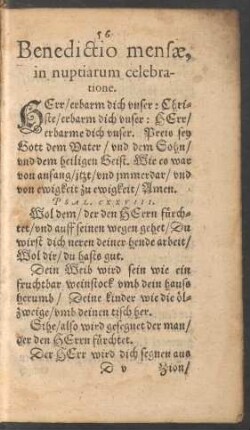 56
Benedictio mensæ,
in nuptiarum celebra-
tione.
HErr/erbarm dich vnser: Chri-
ste/erbarm dich vnser: HErr/
erbarme dich vnser. Preis sey
Gott dem Vater / vnd dem Sohn/
vnd dem heiligen Geist. Wie es war
von anfang/jtzt/vnd jmmerdar/ vnd
von ewigkeit zu ewigkeit/ Amen.
PSAL. CXXVIII.
Wol dem/ der den HErrn fürch-
tet/vnd auff seinen wegen gehet/ Du
wirst dich neren deiner hende arbeit/
Wol dir/ du hasts gut.
Dein Weib wird sein wie ein
fruchtbar weinstock vmb dein hauss
herumb / Deine kinder wie die öl-
zweige/ vmb deinen tisch her.
Sihe/also wird gesegnet der man/
der den HErrn fürchtet.
Der HErr wird dich segnen aus
D v
Zion/